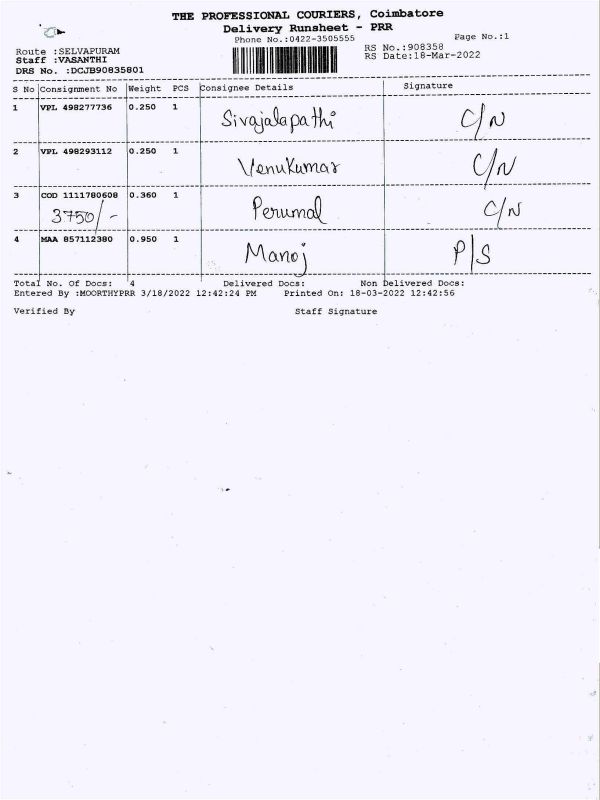 THE PROFESSIONAL COURIERS, Coimbatore
Delivery Runsheet - PRR
Phone No.:0422-3505555
Page No.:1
Route :SELVAPURAM
RS No.:908358
Staff :VASANTHI
RS Date:18-Mar-2022
DRS No. :DCJB90835801
S No Consignment No Weight PCS Consignee Details Signature
1 VPL 498277736 0.250 1 Sivajalapathi C/N
2 VPL 498293112 0.250 1 Venukumar C/N
3 COD 1111780608 0.360 1 Perumal C/N
3750/-
4 MAA 857112380 0.950 1 Manoj P/S
Total No. Of Docs: 4 Delivered Docs: Non Delivered Docs:
Entered By :MOORTHYPRR 3/18/2022 12:42:24 PM Printed On: 18-03-2022 12:42:56
Verified By Staff Signature